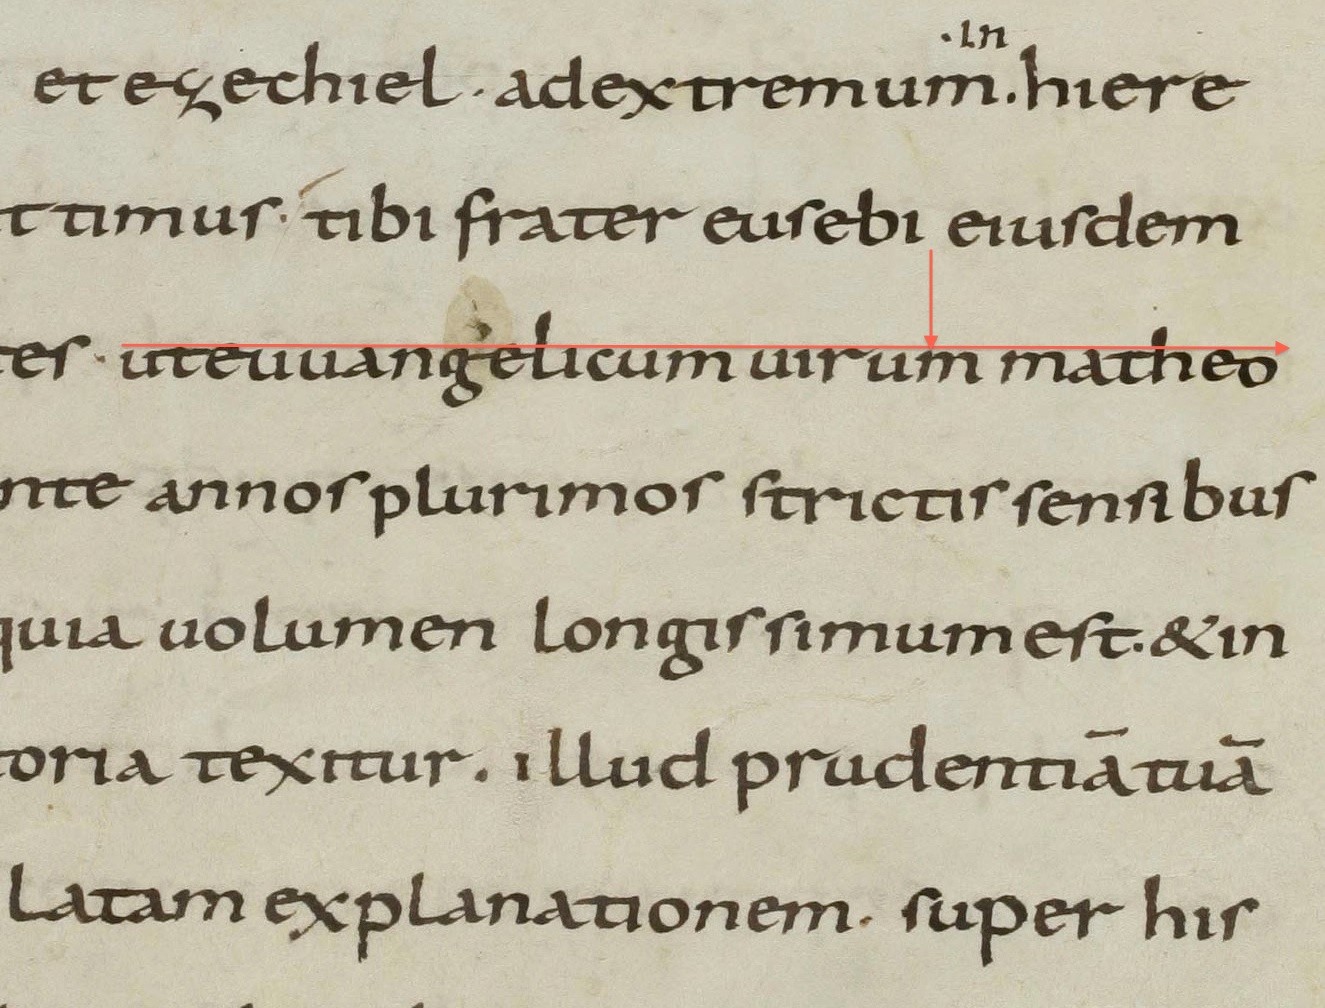 ·in
et ezechiel · ad extremum. hiere
ttimus · tibi frater eusebi eiusdem
tes · ut euuangelicum uirum matheo
nte annos plurimos strictis sensibus
quia uolumen longissimum est. & in
toria texitur. illud prudentiā tuā
latam explanationem. super his